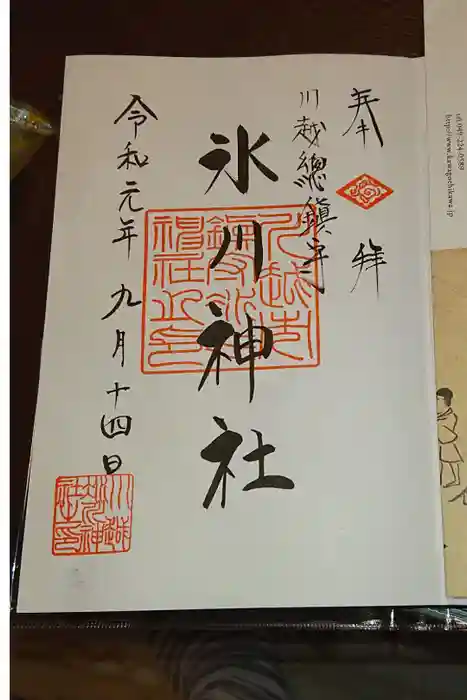 奉拝
川越總鎮守
氷川神社
令和元年九月十四日
川越氷川神社之印
tel.049-224-0589
http://www.kawagoehikawa.jp